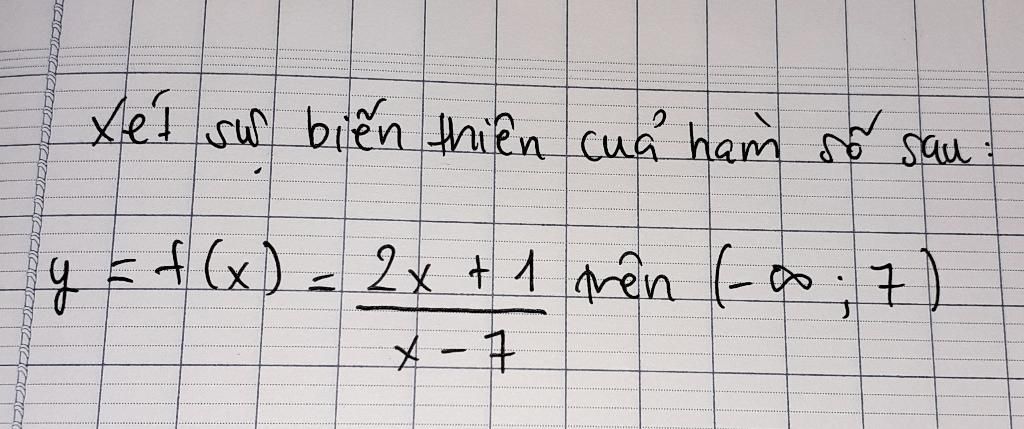 Xét sự biến thiên của hàm số sau:
y = f(x) = \frac{2x + 1}{x - 7} trên (-∞; 7)